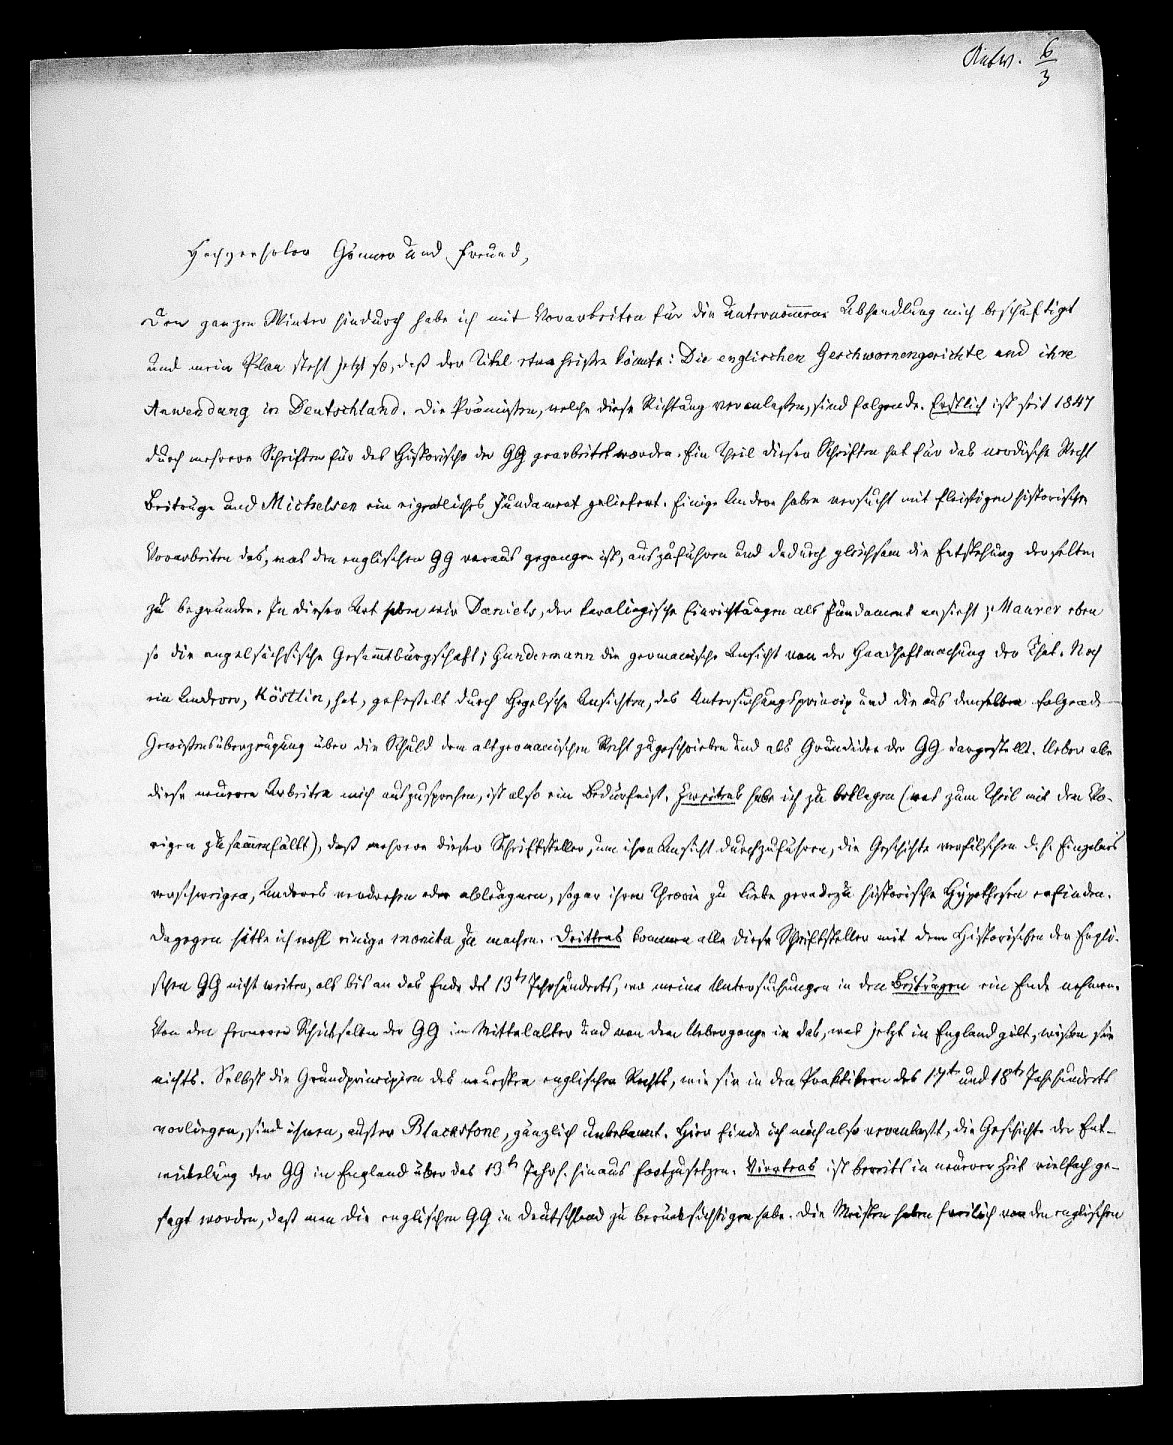 Antw. 6/3
Hochverehrter Gönner und Freund,
Den ganzen Winter hindurch habe ich mit Vorarbeiten für die unternom̄ene Abhandlung mich beschäftigt
und mein Plan steht jetzt so, daß der Titel etwa heißen könnte: Die englischen Geschwornengerichte und ihre
Anwendung in Deutschland. Die Prämissen, welche diese Richtung veranlaßen, sind folgende. Erstlich ist seit 1847
durch mehrere Schriften für das Historische der GG gearbeitet worden. Ein Theil dieser Schriften hat für das nordische Recht
Beiträge und Michelsen ein eigentliches Fundament geliefert. Einige Andere haben versucht mit fleißigen historischen
Vorarbeiten das, was den englischen GG voraus gegangen ist, auszuführen und dadurch gleichsam die Entstehung derselben
zu begründen. In dieser Art sehen wir Daniels, der karolingische Einrichtungen als Fundament ansieht; Maurer eben
so die angelsächsische Gesam̄tbürgschaft; Gundermann die germanische Ansicht von der Handhaftmachung der That. Noch
ein Anderer, Köstlin, hat, gefesselt durch Hegelsche Ansichten, das Untersuchungsprincip und die aus demselben folgende
Gewißensüberzeugung über die Schuld dem altgermanischen Recht zugeschrieben und als Grundidee der GG dargestellt. Ueber alle
diese neueren Arbeiten mich auszusprechen, ist also ein Bedürfniß. Zweitens habe ich zu beklagen (was zum Theil mit dem Vo-
rigen zusam̄enfällt), daß mehrere dieser Schriftsteller, um ihre Ansicht durchzuführen, die Geschichte verfälschen d. h. Einzelnes
verschweigen, Anderes verdrehen oder ableugnen, sogar ihrer Theorie zu Liebe geradezu historische Hypothesen erfinden.
Dagegen hätte ich wohl einige monita zu machen. Drittens kommen alle diese Schriftsteller mit dem Historischen der Engli-
schen GG nicht weiter, als bis an das Ende des 13ts Jahrhunderts, wo meine Untersuchungen in den Beiträgen ein Ende nehmen.
Von den ferneren Schicksalen der GG im Mittelalter und von dem Uebergange in das, was jetzt in England gilt, wißen sie
nichts. Selbst die Grundprincipien des neuesten englischen Rechts, wie sie in den Praktikern des 17t und 18ts Jahrhunderts
vorliegen, sind ihnen, außer Blackstone, gänzlich unbekannt. Hier finde ich mich also veranlaßt, die Geschichte der Ent-
wickelung der GG in England über das 13ts Jahrh. hinaus fortzusetzen. Viertens ist bereits in neuerer Zeit vielfach ge-
sagt worden, daß man die englischen GG in Deutschland zu berücksichtigen habe. Die Meisten haben freilich von den englischen